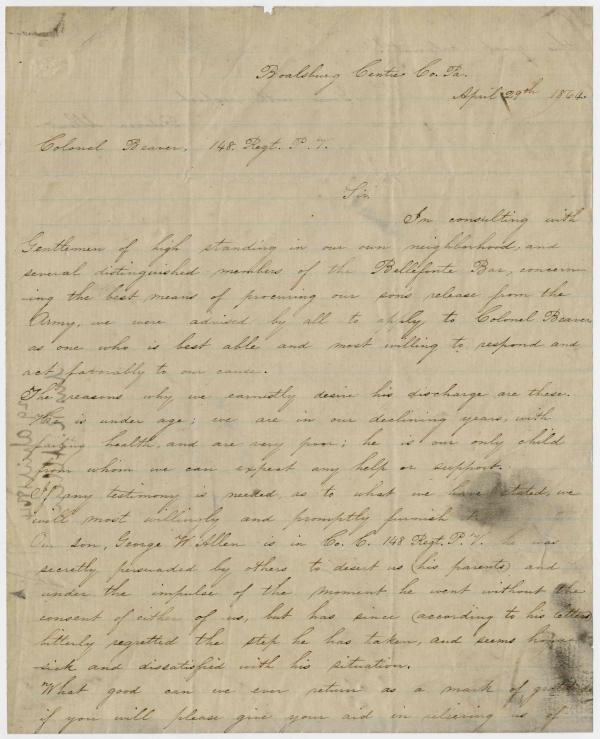 Boalsburg Centre Co. Pa.
April 29th 1864.
Colonel Beaver. 148. Regt. P. V.
Sir
In consulting with
Gentlemen of high standing in our own neighborhood, and
several distinguished members of the Bellefonte Bar, concern-
ing the best means of procuring our sons release from the
Army, we were advised by all to apply to Colonel Beaver
as one who is best able and most willing to respond and
act favorably to our cause.
The reasons why we earnestly desire his discharge are these.
He is under age; we are in our declining years, with
failing health, and are very poor; he is our only child
from whom we can expect any help or support.
If any testimony is needed, as to what we have stated, we
will most willingly and promptly furnish
Our son, George W. Allen is in Co. C. 148 Regt. P. V. he was
secretly persuaded by others to desert us (his parents) and
under the impulse of the moment he went without the
consent of either of us, but has since (according to his letters)
bitterly regretted the step he has taken, and seems home
sick and disatisfied with his situation.
What good can we ever return as a mark of gratitude
if you will please give your aid in relieving us of